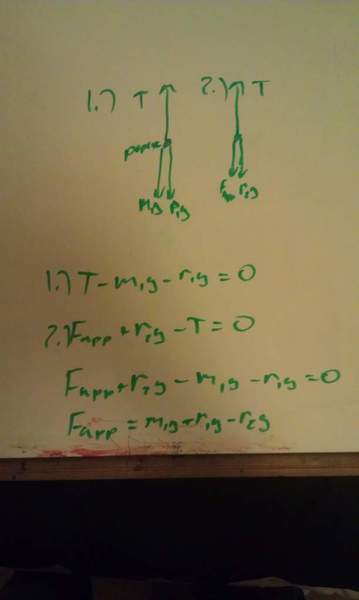 1.) T 2.) T
m₁g r₁g Fapp r₂g
1.) T - m₁g - r₁g = 0
2.) Fapp + r₂g - T = 0
Fapp + r₂g - m₁g - r₁g = 0
Fapp = m₁g + r₁g - r₂g